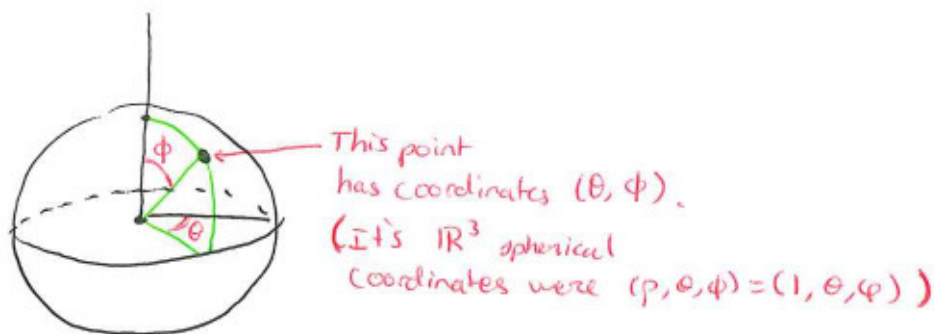 φ
θ
This point
has coordinates (θ, φ).
(It's ℝ³ spherical
coordinates were (ρ, θ, φ) = (1, θ, φ))